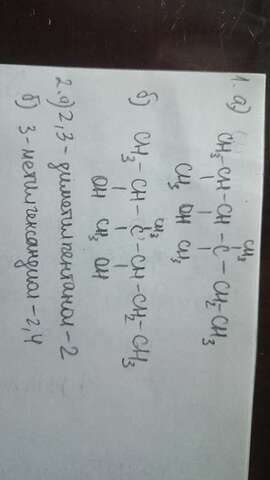 1. а) CH₃
CH₃-CH-CH-C-CH₂CH₃
CH₃ OH CH₃
б) CH₃
CH₃-CH-C-CH-CH₂-CH₃
OH CH₃ OH
2. а) 2,3-диметилпентанол-2
б) 3-метилгександиол-2,4